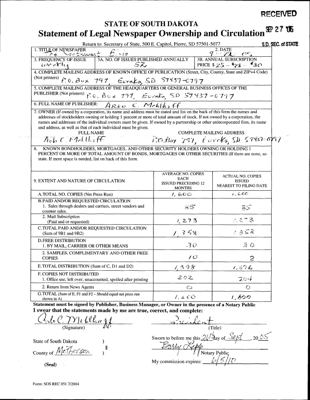 RECEIVED
SEP 27 '05
S.D. SEC. of STATE
STATE OF SOUTH DAKOTA
Statement of Legal Newspaper Ownership and Circulation
Return to: Secretary of State, 500 E. Capitol, Pierre, SD 57501-5077
1. TITLE OF NEWSPAPER
2. DATE
3. FREQUENCY OF ISSUE
Weekly
3A. NO. OF ISSUES PUBLISHED ANNUALLY
52
3B. ANNUAL SUBSCRIPTION
PRICE
4. COMPLETE MAILING ADDRESS OF KNOWN OFFICE OF PUBLICATION (Street, City, County, State and ZIP+4 Code)
(Not printers)
P.O. Box 797, Eureka, SD 57437-0797
5. COMPLETE MAILING ADDRESS OF THE HEADQUARTERS OR GENERAL BUSINESS OFFICES OF THE
PUBLISHER (Not printers)
P.O. Box 797, Eureka, SD 57437-0797
6. FULL NAME OF PUBLISHER:
7. OWNER (If owned by a corporation, its name and address must be stated and list on the back of this form the names and
addresses of stockholders owning or holding 1 percent or more of total amount of stock. If not owned by a corporation, the
names and addresses of the individual owners must be given. If owned by a partnership or other unincorporated firm, its name
and address, as well as that of each individual must be given.
FULL NAME
COMPLETE MAILING ADDRESS
8. KNOWN BONDHOLDERS, MORTGAGES, AND OTHER SECURITY HOLDERS OWNING OR HOLDING 1
PERCENT OR MORE OF TOTAL AMOUNT OF BONDS, MORTGAGES OR OTHER SECURITIES (If there are none, so
state. If more space is needed, list on back of this form.
9. EXTENT AND NATURE OF CIRCULATION
AVERAGE NO. COPIES
EACH
ISSUED PRECEDING 12
MONTHS
ACTUAL NO. COPIES
ISSUED
NEAREST TO FILING DATE
A. TOTAL NO. COPIES (Net Press Run)
1,600
B. PAID AND/OR REQUESTED CIRCULATION
1. Sales through dealers and carriers, street vendors and
counter sales.
85
2. Mail Subscription
(Paid and/or requested)
1,273
C. TOTAL PAID AND/OR REQUESTED CIRCULATION
(Sum of 9B1 and 9B2)
1,358
D. FREE DISTRIBUTION
1. BY MAIL, CARRIER OR OTHER MEANS
30
30
2. SAMPLES, COMPLIMENTARY AND OTHER FREE
COPIES
10
2
E. TOTAL DISTRIBUTION (Sum of C, D1 and D2)
1,398
F. COPIES NOT DISTRIBUTED
1. Office use, left over, unaccounted, spoiled after printing
202
204
2. Return from News Agents
0
0
G. TOTAL (Sum of E, F1 and F2 - Should equal net press run
shown in A)
1,600
1,600
Statement must be signed by Publisher, Business Manager, or Owner in the presence of a Notary Public
I swear that the statements made by me are true, correct, and complete:
(Signature)
President
(Title)
State of South Dakota )
County of McPherson )
Sworn to before me this day of Sept , 20 05
Notary Public
(Seal)
My commission expires:
Form: SOS REC 051 7/2004